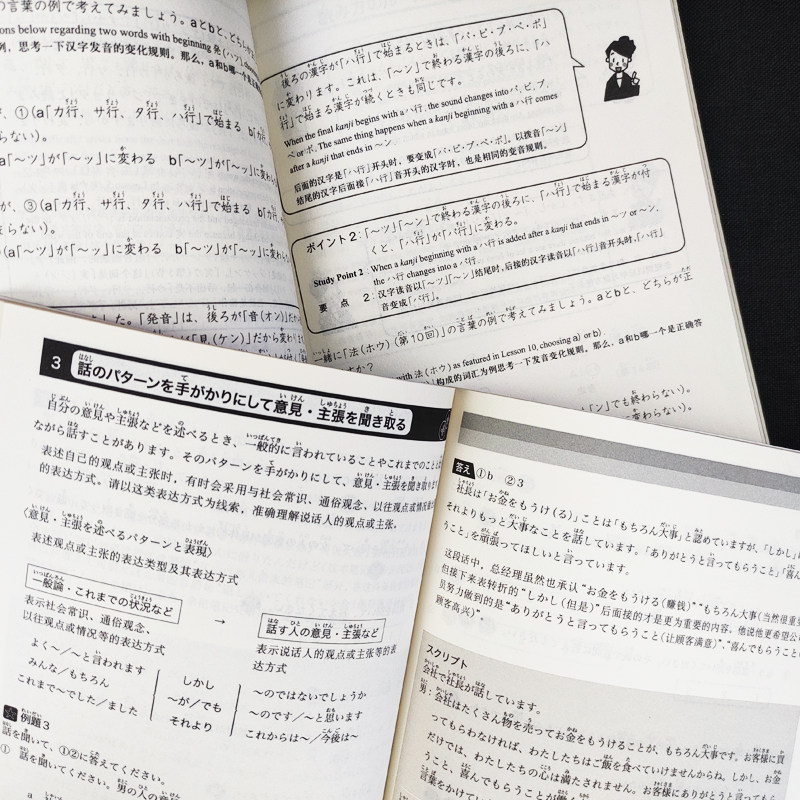 の言葉の例で考えてみましょう。aとbと、どちらが正
ions below regarding two words with beginning 発(ハツ)
例，思考一下汉字发音的变化规则。那么，a和b哪一个是正
①(a「カ行、サ行、タ行、ハ行」で始まる b「カ
らない)。
a「〜ツ」が「〜ッ」に変わる b「〜ツ」が「〜ッ」に変わら
が、③(a「カ行、サ行、タ行、ハ行」で始まる
まらない)。
(a「〜ツ」が「〜ッ」に変わる b「〜ツ」が「〜ッ」に変わら
ました。「発音」は、後ろが「音(オン)」だか
「見(ケン)」だから変わ
後ろの漢字が「ハ行」で始まるときは、「パ・ピ・プ・ペ・ポ」
に変わります。これは、「〜ン」で終わる漢字の後ろに、「ハ
行」で始まる漢字が続くときも同じです。
When the final kanji begins with a ハ行, the sound changes into パ, ピ, プ,
ペ or ポ. The same thing happens when a kanji beginning with a ハ行 comes
after a kanji that ends in 〜ン.
后面的汉字是「ハ行」开头时，要变成「パ・ピ・プ・ペ・ポ」。以拨音「〜ン」
结尾的汉字后面接「ハ行」音开头的汉字时，也是相同的变音规则。
ポイント2：「〜ツ」「〜ン」で終わる漢字の後ろに、「ハ行」で始まる漢字が付
くと、「ハ行」が「パ行」に変わる。
Study Point 2：When a kanji beginning with a ハ行 is added after a kanji that ends in 〜ツ or 〜ン,
the ハ行 changes into a パ行.
要 点 2：汉字读音以「〜ツ」「〜ン」结尾时，后接的汉字读音以「ハ行」音开头时，「ハ行」
音变成「パ行」。
一緒に「法(ホウ)(第10回)」の言葉の例で考えてみましょう。aとbと、どちらが正
すか？
with 法(ホウ) as featured in Lesson 10, choosing a) or b).
构成的词汇为例思考一下发音变化规则。那么，a和b哪一个是正确答
「〜ン」でも終わらない)。
3 話のパターンを手がかりにして意見・主張を聞き取る
自分の意見や主張などを述べるとき、一般的に言われていることやこれまでのことに
ながら話すことがあります。そのパターンを手がかりにして、意見・主張を聞き
表述自己的观点或主张时，有时会采用与社会常识、通俗观念、以往观点或情况
的表达方式。请以这类表达方式为线索，准确理解说话人的观点或主张。
〈意見・主張を述べるパターンと表現〉
表述观点或主张的表达类型及其表达方式
一般論・これまでの状況など
→
話す人の意見・主張など
表示社会常识、通俗观念、
以往观点或情况等的表达方式
表示说话人的观点或主张等的表
达方式
よく〜/〜と言われます
みんな/もちろん
これまで〜でした/ました
しかし
〜が/でも
それより
〜のではないでしょうか
〜のです/〜と思います
これからは〜/今後は〜
例題3
話を聞いて、①②に答えてください。
① 話を聞いてください。男の人の意
a
答え ①b ②3
社長は「お金をもうけ(る)」ことは「もちろん大事」と認めていますが、「しかし」
それよりもっと大事なことを話しています。「ありがとうと言ってもらうこと」「喜ん
うこと」を頑張ってほしいと言っています。
这段话中，总经理虽然也承认“お金をもうける(赚钱)”“もちろん大事(当然很重要
但接下来表转折的“しかし(但是)”后面接的才是更为重要的内容。他说他更希望公
员努力做到的是“ありがとうと言ってもらうこと(让顾客满意)”、“喜んでもらうこと(
顾客高兴)”。
スクリプト
会社で社長が話しています。
男：会社はたくさん物を売ってお金をもうけることが、もちろん大事です。お客様に買
ってもらわなければ、わたしたちはご飯を食べていけませんからね。しかし、お金
だけでは、わたしたちの心は満たされません。お客様にありがとうと言ってもらう
こと、喜んでもらうことが
言葉をかけてい